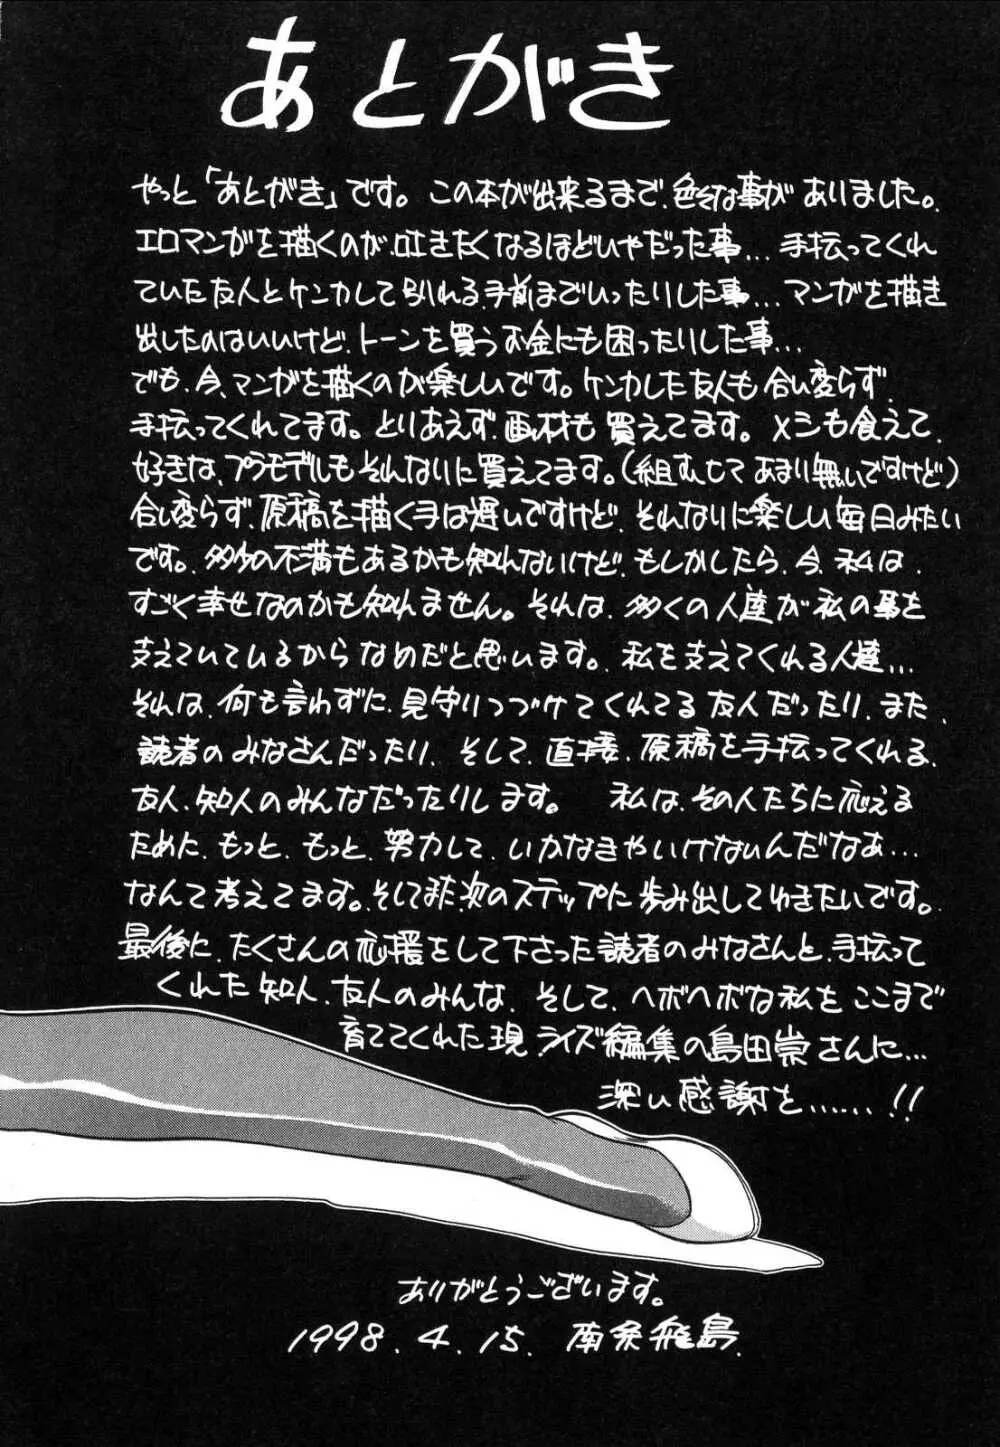 あとがき
やっと「あとがき」です。この本が出来るまで、色々な事がありました。
エロマンガを描くのが、吐きたくなるほどいやだった事…手伝ってくれ
ていた友人とケンカして別れる手前までいったりした事…マンガを描き
出したのはいいけど、トーンを買うお金にも困ったりした事…
でも、今、マンガを描くのが楽しいです。ケンカした友人も合い変らず、
手伝ってくれてます。とりあえず、画材も買えてます。メシも食えて、
好きな、プラモデルもそれなりに買えてます。(組む 時があまり無いですけど)
合い変らず、原稿を描く手は遅いですけど、それなりに楽しい毎日みたい
です。多々の不満もあるかも知れないけど、もしかしたら、今、私は、
すごく幸せなのかも知れません。それは、多くの人達が私の事を
支えていているからなめだと思います。私を支えてくれる人達…
それは、何も言わずに、見守りつづけてくれてる友人だったり、また、
読者のみなさんだったり、そして、直接、原稿を手伝ってくれる、
友人、知人のみんなだったりします。 私は、その人たちに応える
ために、もっと、もっと、努力して、いかなきゃいけないんだなぁ…
なんて考えてます。そしてまた、次のステップに歩み出してゆきたいです。
最後に、たくさんの応援をして下さった読者のみなさんと、手伝って
くれた知人、友人のみんな、そして、ヘボヘボな私をここまで
育ててくれた現ライズ編集の島田崇さんに…
深い感謝を……!!
ありがとうございます。
1998.4.15. 南条飛鳥.